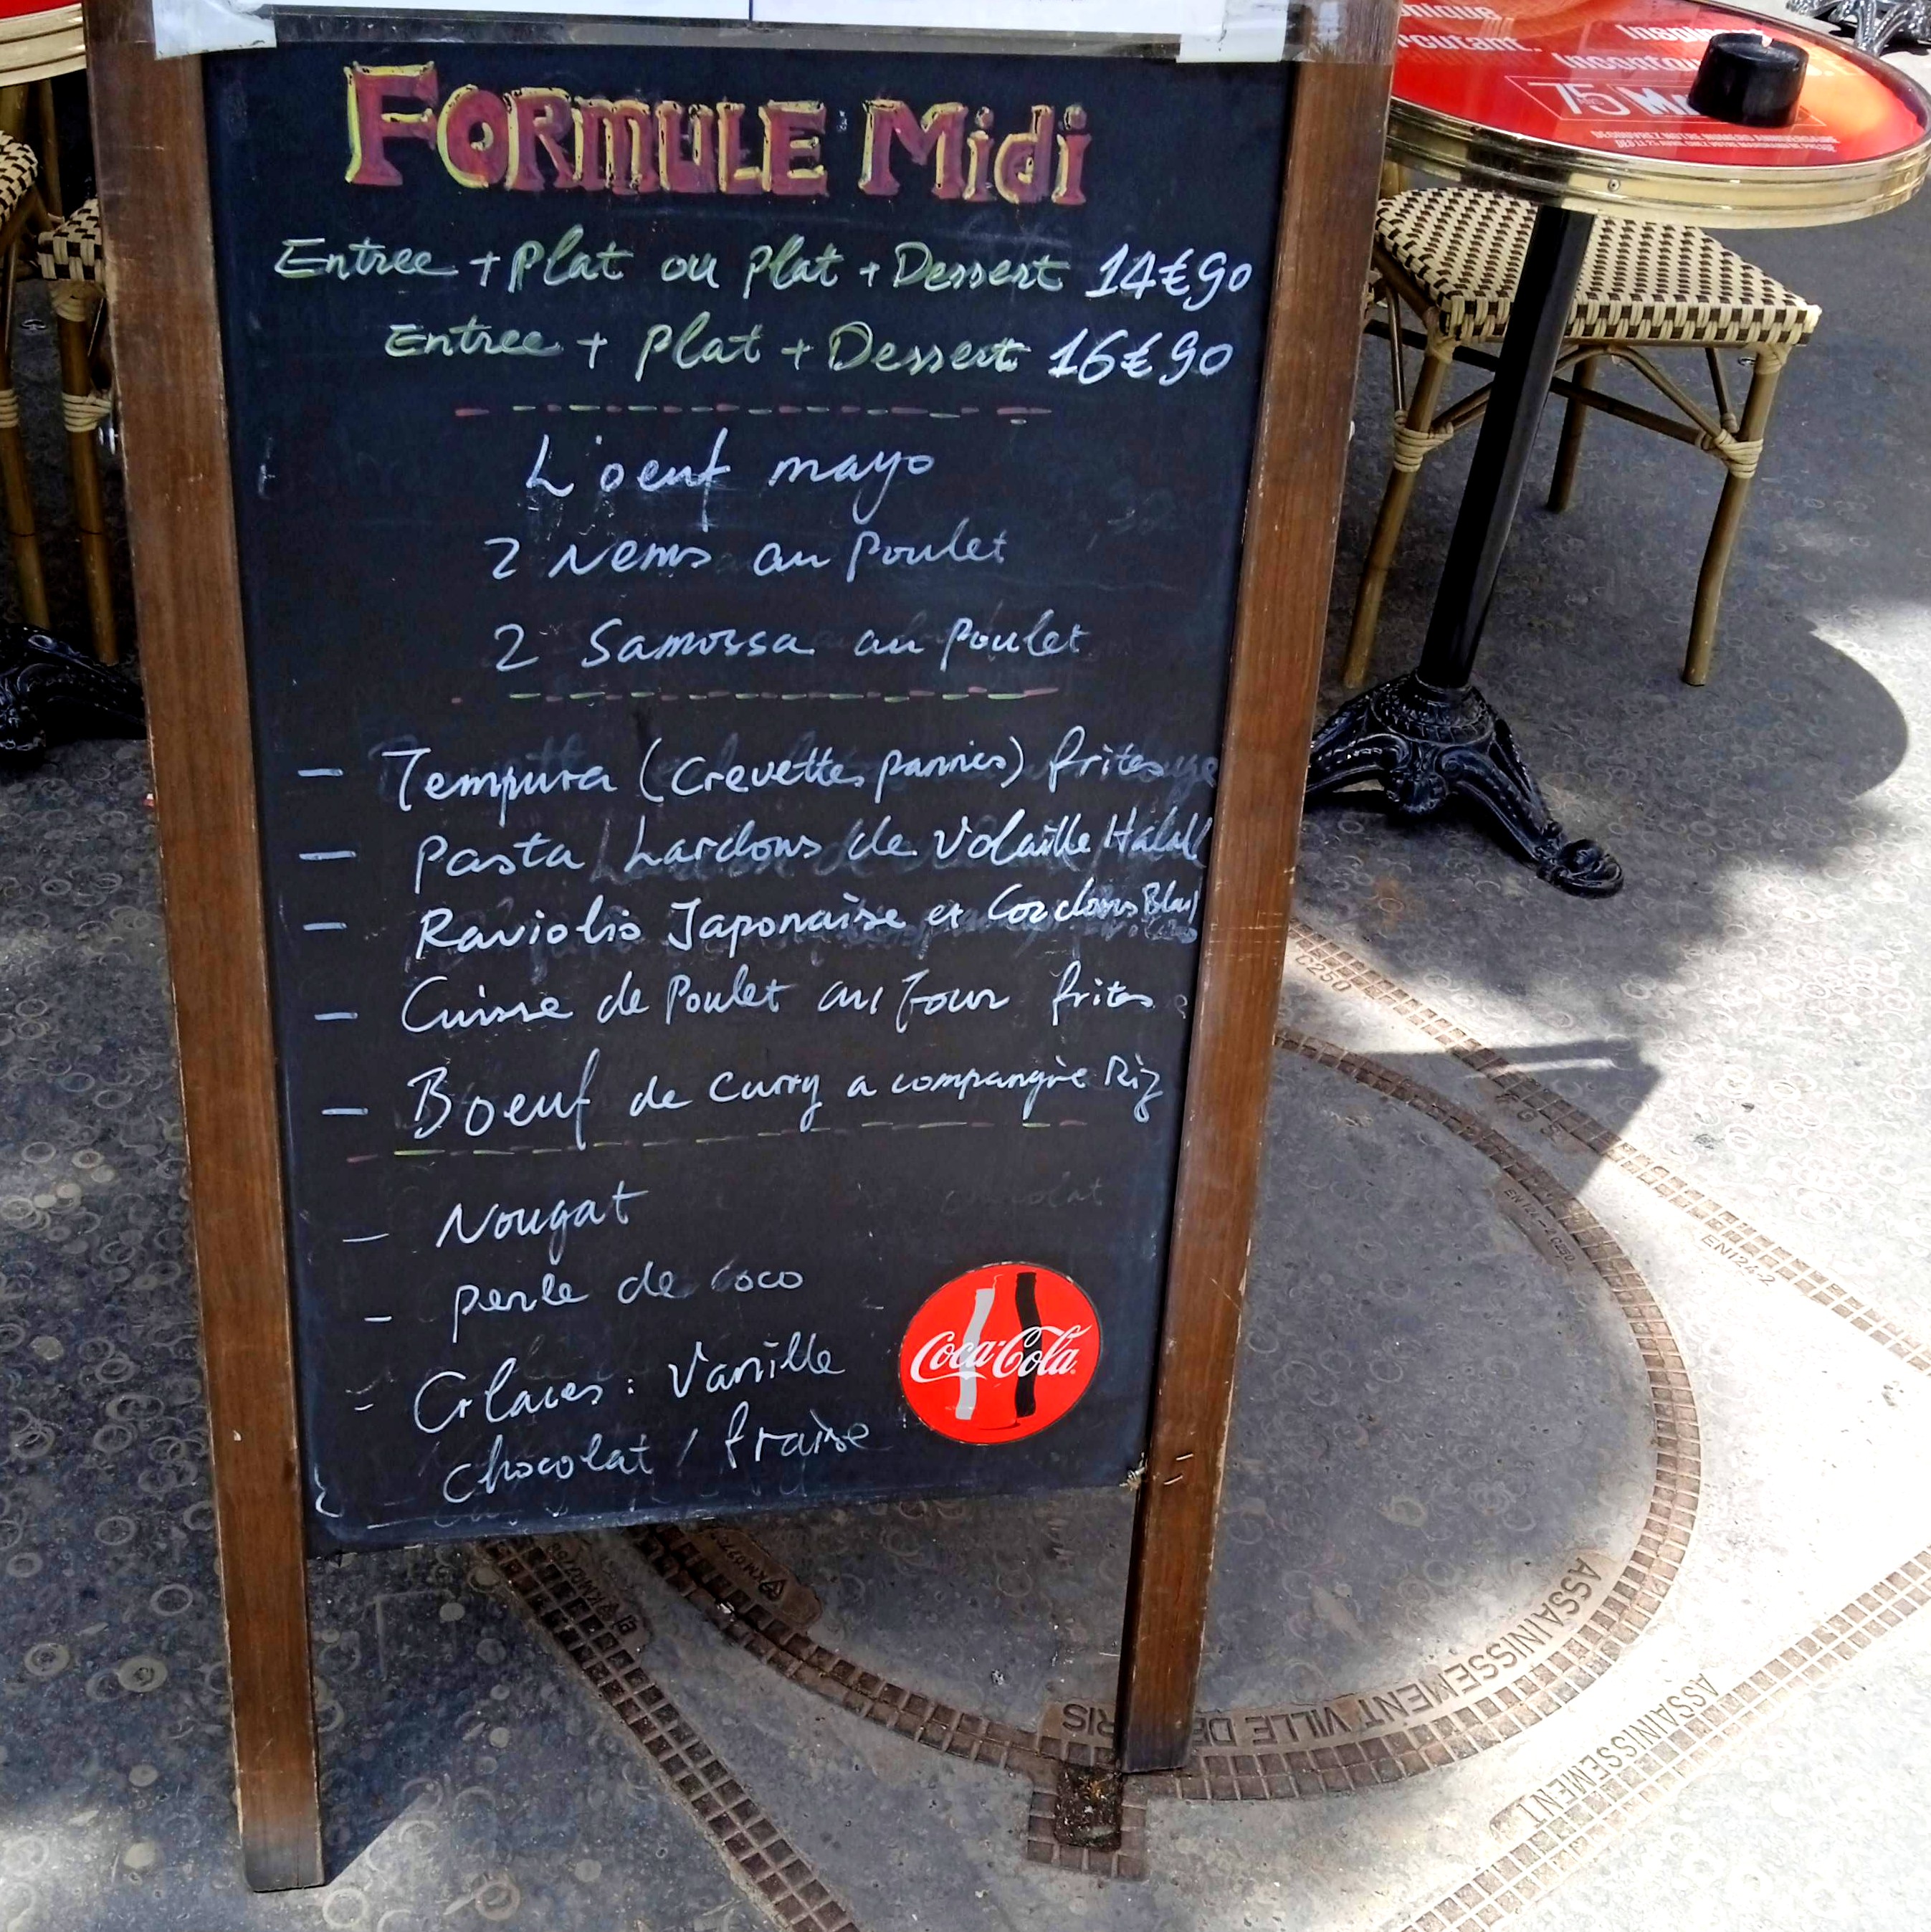 FORMULE Midi
Entree + plat ou plat + Dessert 14€90
Entree + plat + Dessert 16€90
L'oeuf mayo
2 Nems au poulet
2 Samossa au poulet
- Tempura (crevettes pannies) frites
- pasta Lardons de volaille Halal
- Raviolis Japonaise et Cordons
- Cuisse de Poulet au four frites
- Boeuf de curry a compangie Riz
- Nougat
- perle de coco
- Glaces : Vanille
chocolat / fraise
Coca-Cola
75
C250
EN124-2 C250
EN124-2
ASSAINISSEMENT VILLE DE
RIS
ASSAINISSEMENT